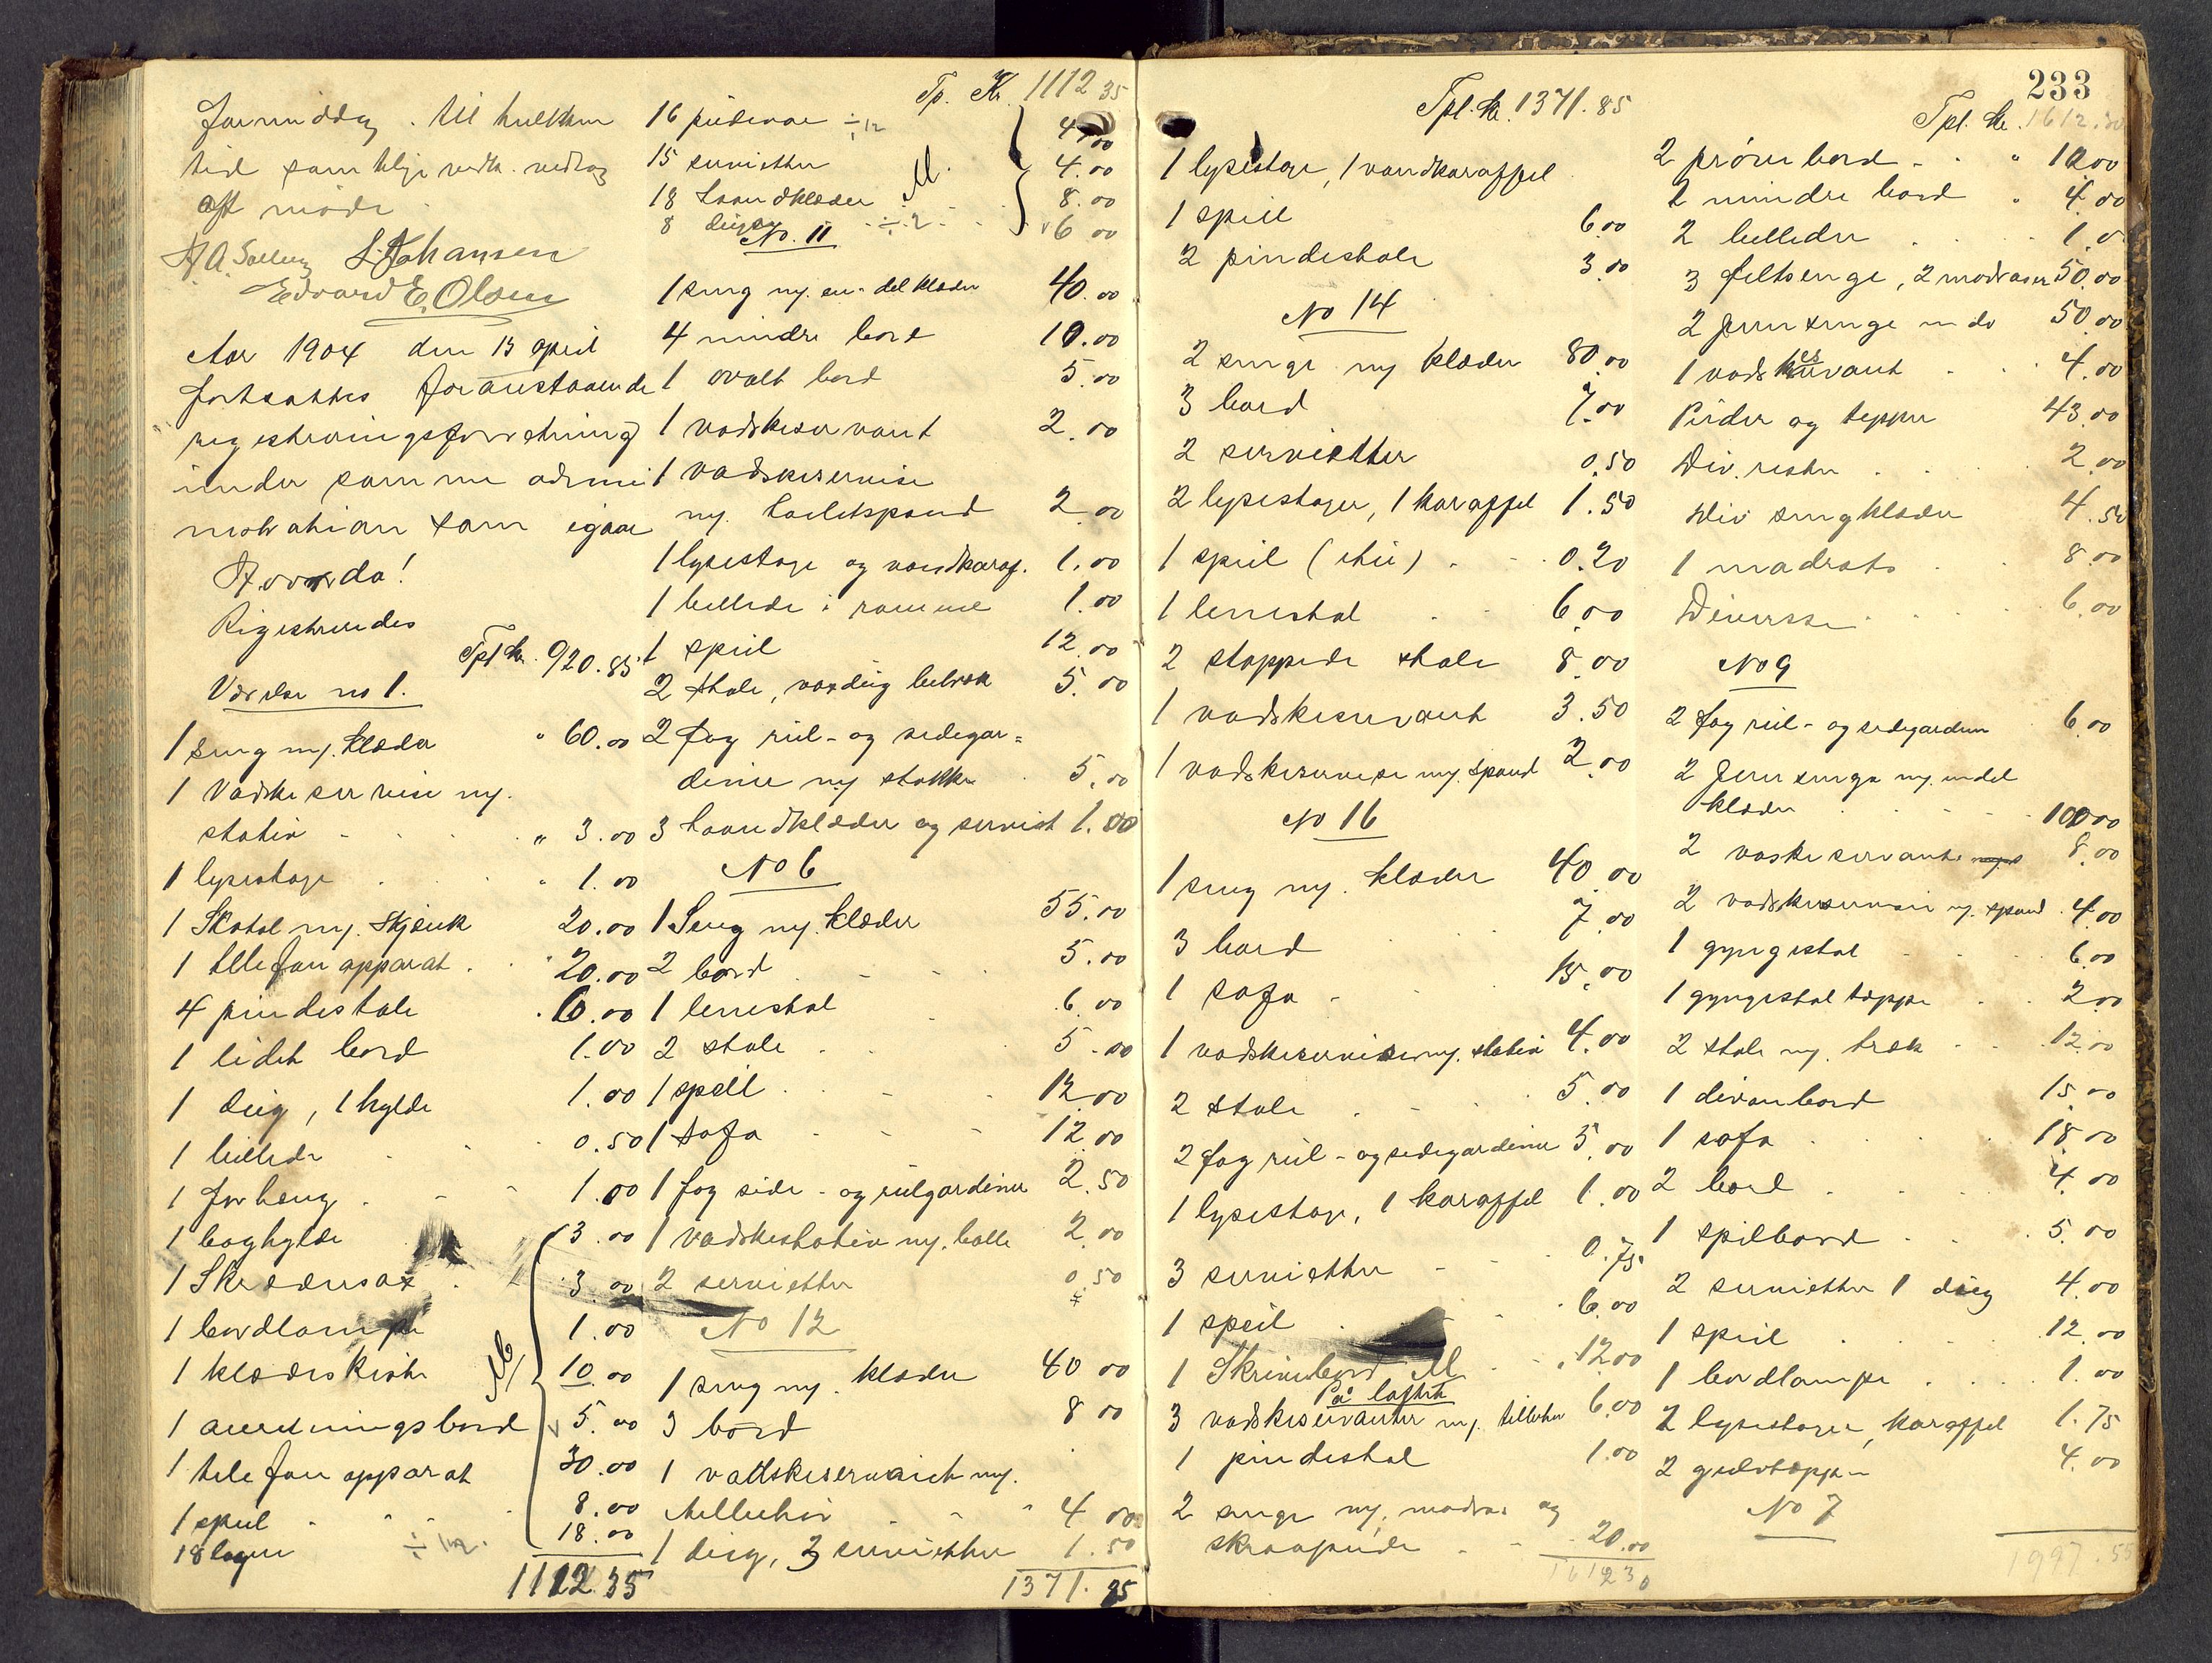 formiddag. til hvilken
tid samtlige vedk. vedtog
at møde
A. Solberg L. Johansen
Edvard E. Olsen
Aar 1904 den 15 april
fortsattes foranstaaende
registreringsforretning
under samme admi
nistration som igaar
Hvorda!
Registreredes
Tpt kr. 920.85
Værelse no 1.
1 seng m. klæder " 60.00
1 Vadskeservise m.
stativ " 3.00
1 lysestage " 1.00
1 Skatol m. skjænk 20.00
1 tellefon apparat 20.00
4 pindestole 6.00
1 lidet bord 1.00
1 dug, 1 hylde 1.00
1 billede 0.50
1 forhæng 1.00
1 boghylde 3.00
1 Skrædersax 3.00
1 bordlampe 1.00
1 klædeskiste 10.00
1 anretningsbord 5.00
1 telefon apparat 30.00
1 speil 8.00
18 lagen ÷ 12. 18.00
1112.35
Tp. Kr. 1112.35
16 pudevar ÷ 12 4.00
15 servietter 4.00
18 haandklæder 8.00
8 duger ÷ 2 6.00
No. 11
1 seng m. en del klæder 40.00
4 mindre bord 10.00
1 ovalt bord 5.00
1 vadskeservant 2.00
1 vadskeservise
m. toiletspand 2.00
1 lysestage og vandkaraf. 1.00
1 billede i ramme 1.00
1 speil 12.00
2 stole, voxdug betræk 5.00
2 Fag rul- og sidegar=
diner m stokke 5.00
3 haandklæder og serviet 1.00
No 6
1 Seng m. klæder 55.00
2 bord 5.00
1 lenestol 6.00
2 stole 5.00
1 speil 12.00
1 sofa 12.00
1 fag side- og rulgardiner 2.50
1 vadskestativ m. balle 2.00
2 servietter 0.50
No 12
1 seng m. klæder 40 00
3 bord 8 00
1 vadskeserviset m.
tilbehør 4 00
1 dug, 3 servietter 1.50
1371.85
Tpl. kr. 1371.85
1 lysestage, 1 vandkaraffel
1 speil 6.00
2 pindestole 3.00
No 14
2 senge m klæder 80.00
3 bord 7.00
2 servietter 0.50
2 lysestager, 1 karaffel 1.50
1 speil (itu) 0.20
1 lenestol 6.00
2 stoppede stole 8.00
1 vadskeservant 3.50
1 vadskeservise m. spand 2.00
No 16
1 seng m. klæder 40.00
3 bord 7.00
1 sofa 15.00
1 vadskeservise m. stativ 4.00
2 stole 5.00
2 fag rul- og sidegardiner 5.00
1 lysestage, 1 karaffel 1.00
3 servietter 0.75
1 speil 6.00
1 Skrivebord 12.00
Paa loftet
3 vadskeservanter m. tilbehør 6.00
1 pindestol 1.00
2 senge m. madras og
skraapude 20.00
1612 30
233
Tpl. kr. 1612.30
2 prøvebord 10.00
2 mindre bord 4.00
2 billeder 1.0
3 feltsenge, 2 madraser 50.00
2 jernsenge m do 50.00
1 vadskeservant 4.00
Puder og tepper 43.00
Div. rester 2.00
Div sengklæder 4.50
1 madrats 8.00
Diverse 6.00
No 9
2 fag rul- og sidegardiner 6.00
2 jernsenge m. endel
klæder 100.00
2 vaskeservante 8.00
2 vadskeservise m. spand 4.00
1 gyngestol 6.00
1 gyngestol teppe 2.00
2 stole m. træk 12.00
1 divanbord 15.00
1 sofa 18.00
2 bord 4.00
1 spilbord 5.00
2 servietter 1 dug 4.00
1 speil 12.00
1 bordlampe 1.00
2 lysestager, karaffel 1.75
2 gulvtepper 4.00
No 7
1997.55